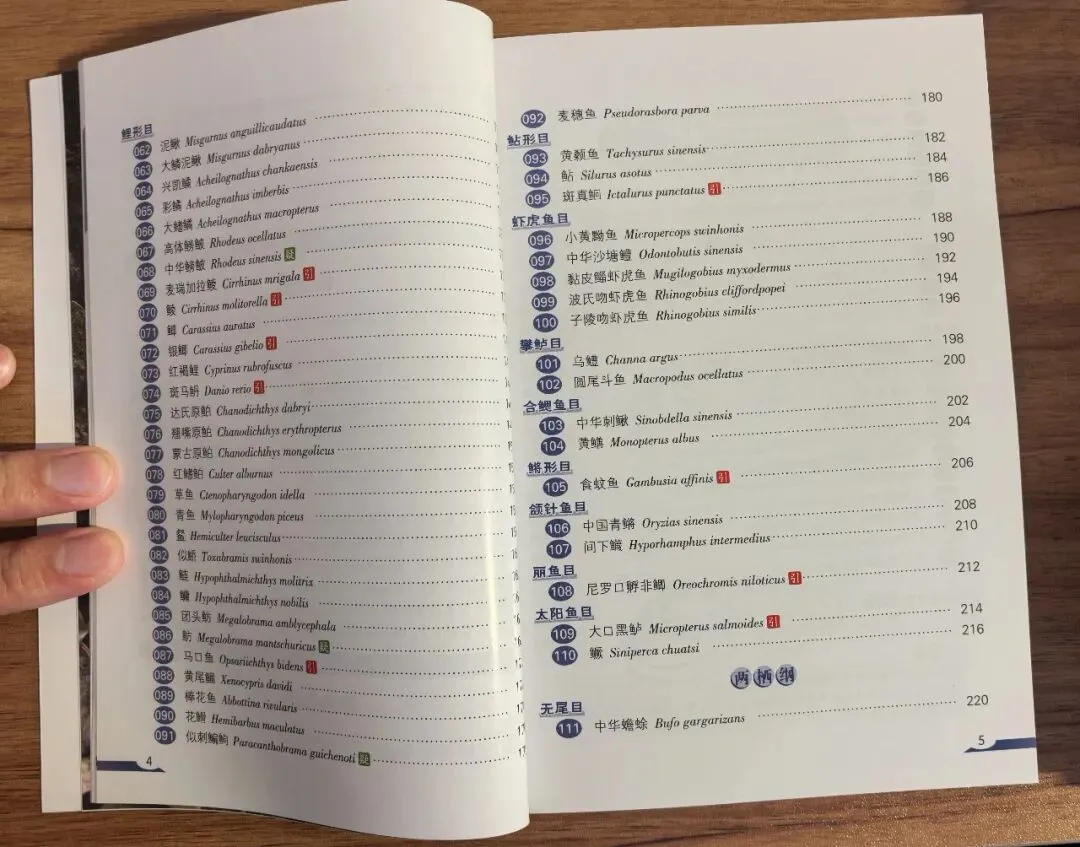 鲤形目
062 泥鳅 Misgurnus anguillicaudatus
063 大鳞泥鳅 Misgurnus dabryanus
064 兴凯鱊 Acheilognathus chankaensis
065 彩鱊 Acheilognathus imberbis
066 大鳍鱊 Acheilognathus macropterus
067 高体鳑鲏 Rhodeus ocellatus
068 中华鳑鲏 Rhodeus sinensis 疑
069 麦瑞加拉鲮 Cirrhinus mrigala 引
070 鲮 Cirrhinus molitorella 引
071 鲫 Carassius auratus
072 银鲫 Carassius gibelio 引
073 红褐鲤 Cyprinus rubrofuscus
074 斑马鲃 Danio rerio 引
075 达氏原鲌 Chanodichthys dabryi
076 翘嘴原鲌 Chanodichthys erythropterus
077 蒙古原鲌 Chanodichthys mongolicus
078 红鳍鲌 Culter alburnus
079 草鱼 Ctenopharyngodon idella
080 青鱼 Mylopharyngodon piceus
081 䱗 Hemiculter leucisculus
082 似鱎 Toxabramis swinhonis
083 鲢 Hypophthalmichthys molitrix
084 鳙 Hypophthalmichthys nobilis
085 团头鲂 Megalobrama amblycephala
086 鲂 Megalobrama mantschuricus 疑
087 马口鱼 Opsariichthys bidens 引
088 黄尾鲴 Xenocypris davidi
089 棒花鱼 Abbottina rivularis
090 花䱻 Hemibarbus maculatus
091 似刺鳊鮈 Paracanthobrama guichenoti 疑
4
092 麦穗鱼 Pseudorasbora parva 180
鲇形目
093 黄颡鱼 Tachysurus sinensis 182
094 鲇 Silurus asotus 184
095 斑真鮰 Ictalurus punctatus 引 186
虾虎鱼目
096 小黄黝鱼 Micropercops swinhonis 188
097 中华沙塘鳢 Odontobutis sinensis 190
098 黏皮鲻虾虎鱼 Mugilogobius myxodermus 192
099 波氏吻虾虎鱼 Rhinogobius cliffordpopei 194
100 子陵吻虾虎鱼 Rhinogobius similis 196
攀鲈目
101 乌鳢 Channa argus 198
102 圆尾斗鱼 Macropodus ocellatus 200
合鳃鱼目
103 中华刺鳅 Sinobdella sinensis 202
104 黄鳝 Monopterus albus 204
鳉形目
105 食蚊鱼 Gambusia affinis 引 206
颌针鱼目
106 中国青鳉 Oryzias sinensis 208
107 间下鱵 Hyporhamphus intermedius 210
丽鱼目
108 尼罗口孵非鲫 Oreochromis niloticus 引 212
太阳鱼目
109 大口黑鲈 Micropterus salmoides 引 214
110 鳜 Siniperca chuatsi 216
两栖纲
无尾目
111 中华蟾蜍 Bufo gargarizans 220
5